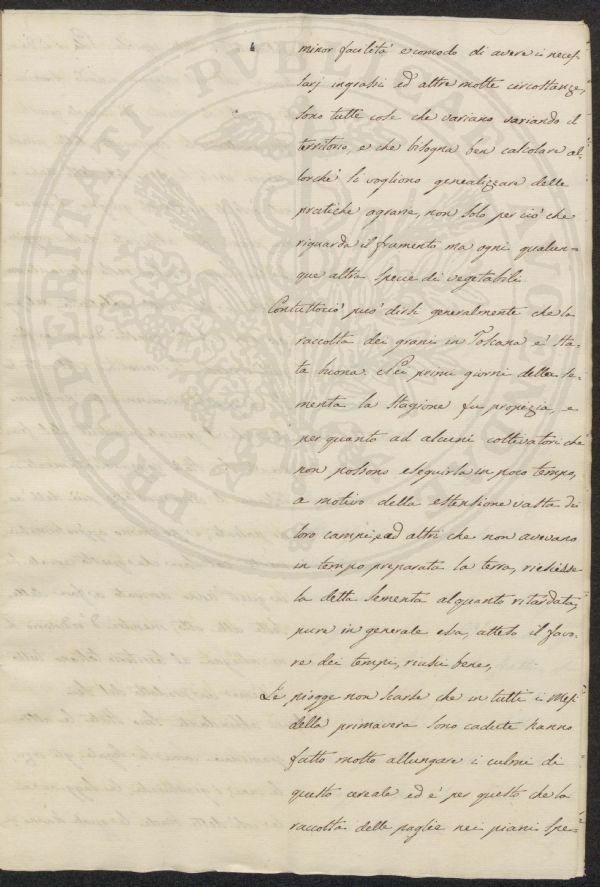 minor facilità e comodo di avere i neces-
sarj ingrassi ed altre molte circostanze,
sono tutte cose che variano variando il
territorio, e che bisogna ben calcolare al-
lorchè si vogliono genealizzare delle
pratiche agrarie, non solo per ciò che
riguarda il frumento ma ogni qualun-
que altra specie di vegetabili
Contuttociò può dirsi generalmente che la
raccolta dei grani in Toscana è sta-
ta buona. Nei primi giorni della se-
menta la stagione fu propizia, e
per quanto ad alcuni coltivatori che
non possono eseguirla in poco tempo,
a motivo della estensione vasta dei
loro campi, ed altri che non avevano
in tempo preparata la terra, riescisse
la detta sementa alquanto ritardata,
pure in generale essa, atteso il favo-
re dei tempi, riuscì bene,
Le piogge non scarse che in tutti i mesi
della primavera sono cadute hanno
fatto molto allungare i culmi di
questo cereale ed è per questo che la
raccolta delle paglie nei piani spe-
PROSPERITATI PVBLICAE